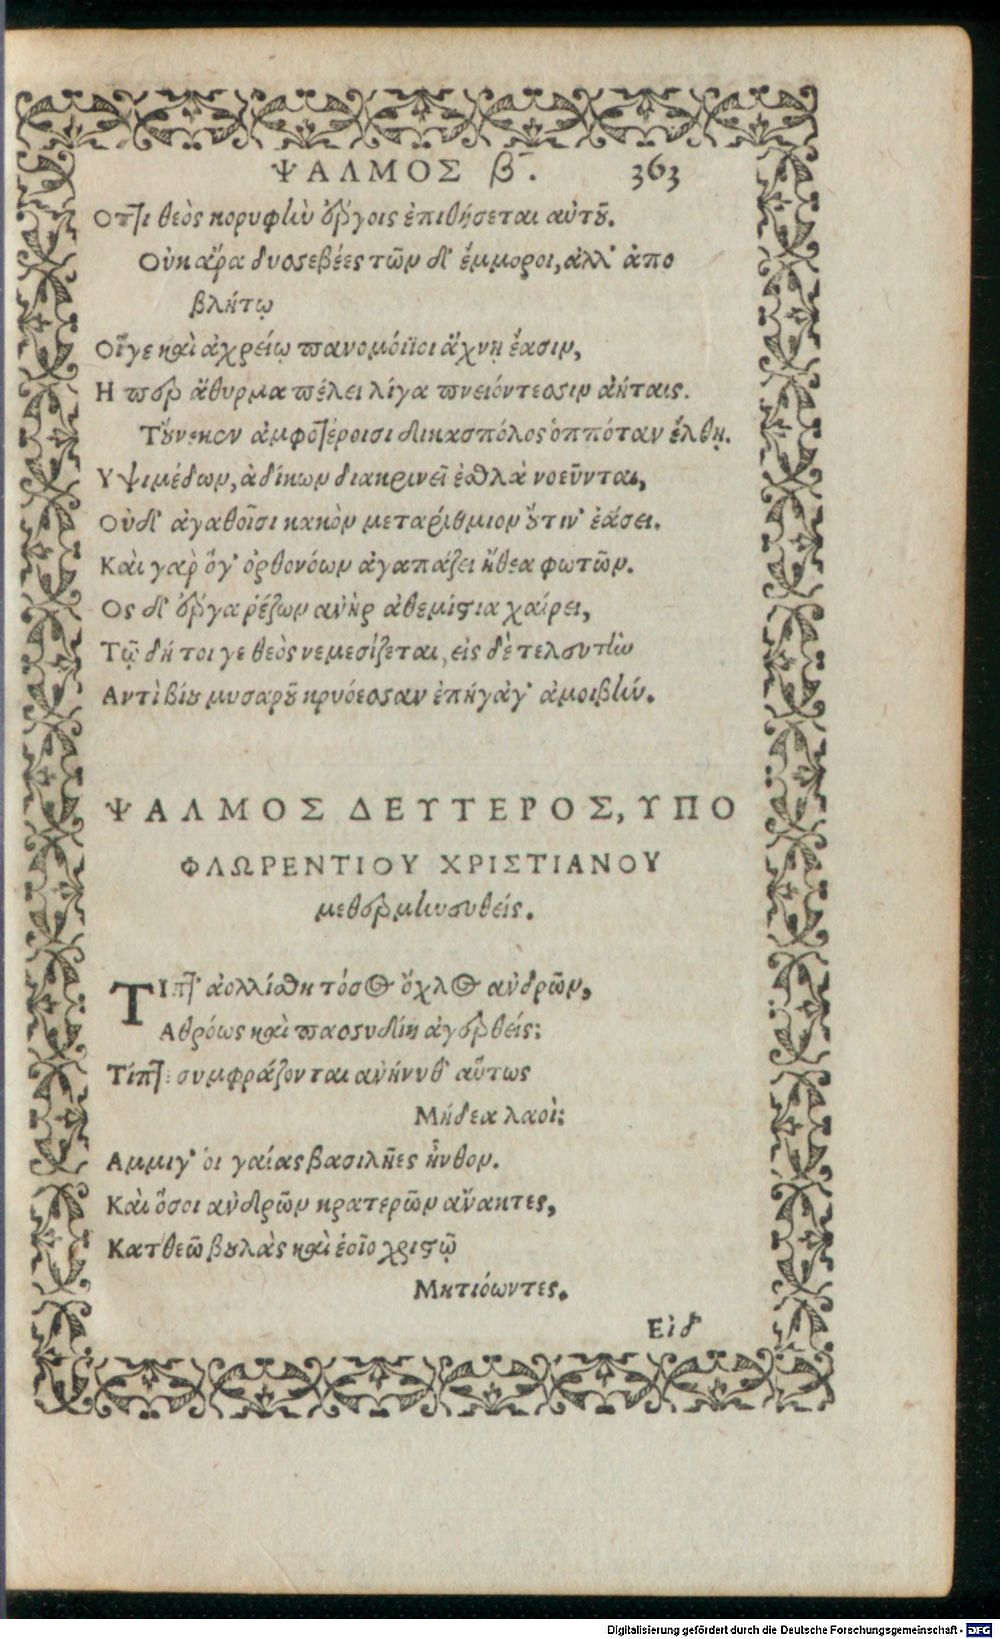 ΨΑΛΜΟΣ β‾. 363
Οττι θεὸς κορυφὴν ἔργοις ἐπιθήσεται αὐτοῦ.
Οὐκ ἄρα δυσσεβέες τῶν δ' ἔμμοροι, ἀλλ' ἀπο
βλήτῳ
Οἵγε καὶ ἀχρείῳ πανομόιϊοι ἄχνῃ ἔασιν,
Η περ ἄθυρμα πέλει λίγα πνειόντεσσιν ἀήταις.
Τούνεκεν ἀμφοτέροισι δικασπόλος ὁππόταν ἔλθῃ.
Υψιμέδων, ἀδίκων διακρινεῖ ἐσθλὰ νοεῦνται,
Οὐδ' ἀγαθοῖσι κακὸν μεταρίθμιον οὔτιν' ἐάσει.
Καὶ γὰρ ὅγ' ὀρθονόων ἀγαπάζει ἤθεα φωτῶν.
Ος δ' ἔργα ῥέζων ἀνὴρ ἀθεμίστια χαίρει,
Τῷ δή τοι γε θεὸς νεμεσίζεται, εἰς δὲ τελευτὴν
Αντὶ βίου μυσαροῦ κρυόεσσαν ἐπήγαγ' ἀμοιβήν.
ΨΑΛΜΟΣ ΔΕΥΤΕΡΟΣ, ΥΠΟ
ΦΛΩΡΕΝΤΙΟΥ ΧΡΙΣΤΙΑΝΟΥ
μεθερμηνευθείς.
ΤΙπτ' ἀολλίσθη τόσος ὄχλος ἀνδρῶν,
Αθρόως καὶ πασσυδίη ἀγερθείς;
Τίπτε συμφράζονται ἀνήνυθ' αὕτως
Μήδεα λαοὶ;
Αμμιγ' ὁι γαίας βασιλῆες ἦνθον.
Καὶ ὅσοι ἀνδρῶν κρατερῶν ἄνακτες,
Κατθεῶ βουλὰς καὶ ἑοῖο χριστῷ
Μητιόωντες.
Εἰ δ'
Digitalisierung gefördert durch die Deutsche Forschungsgemeinschaft - DFG